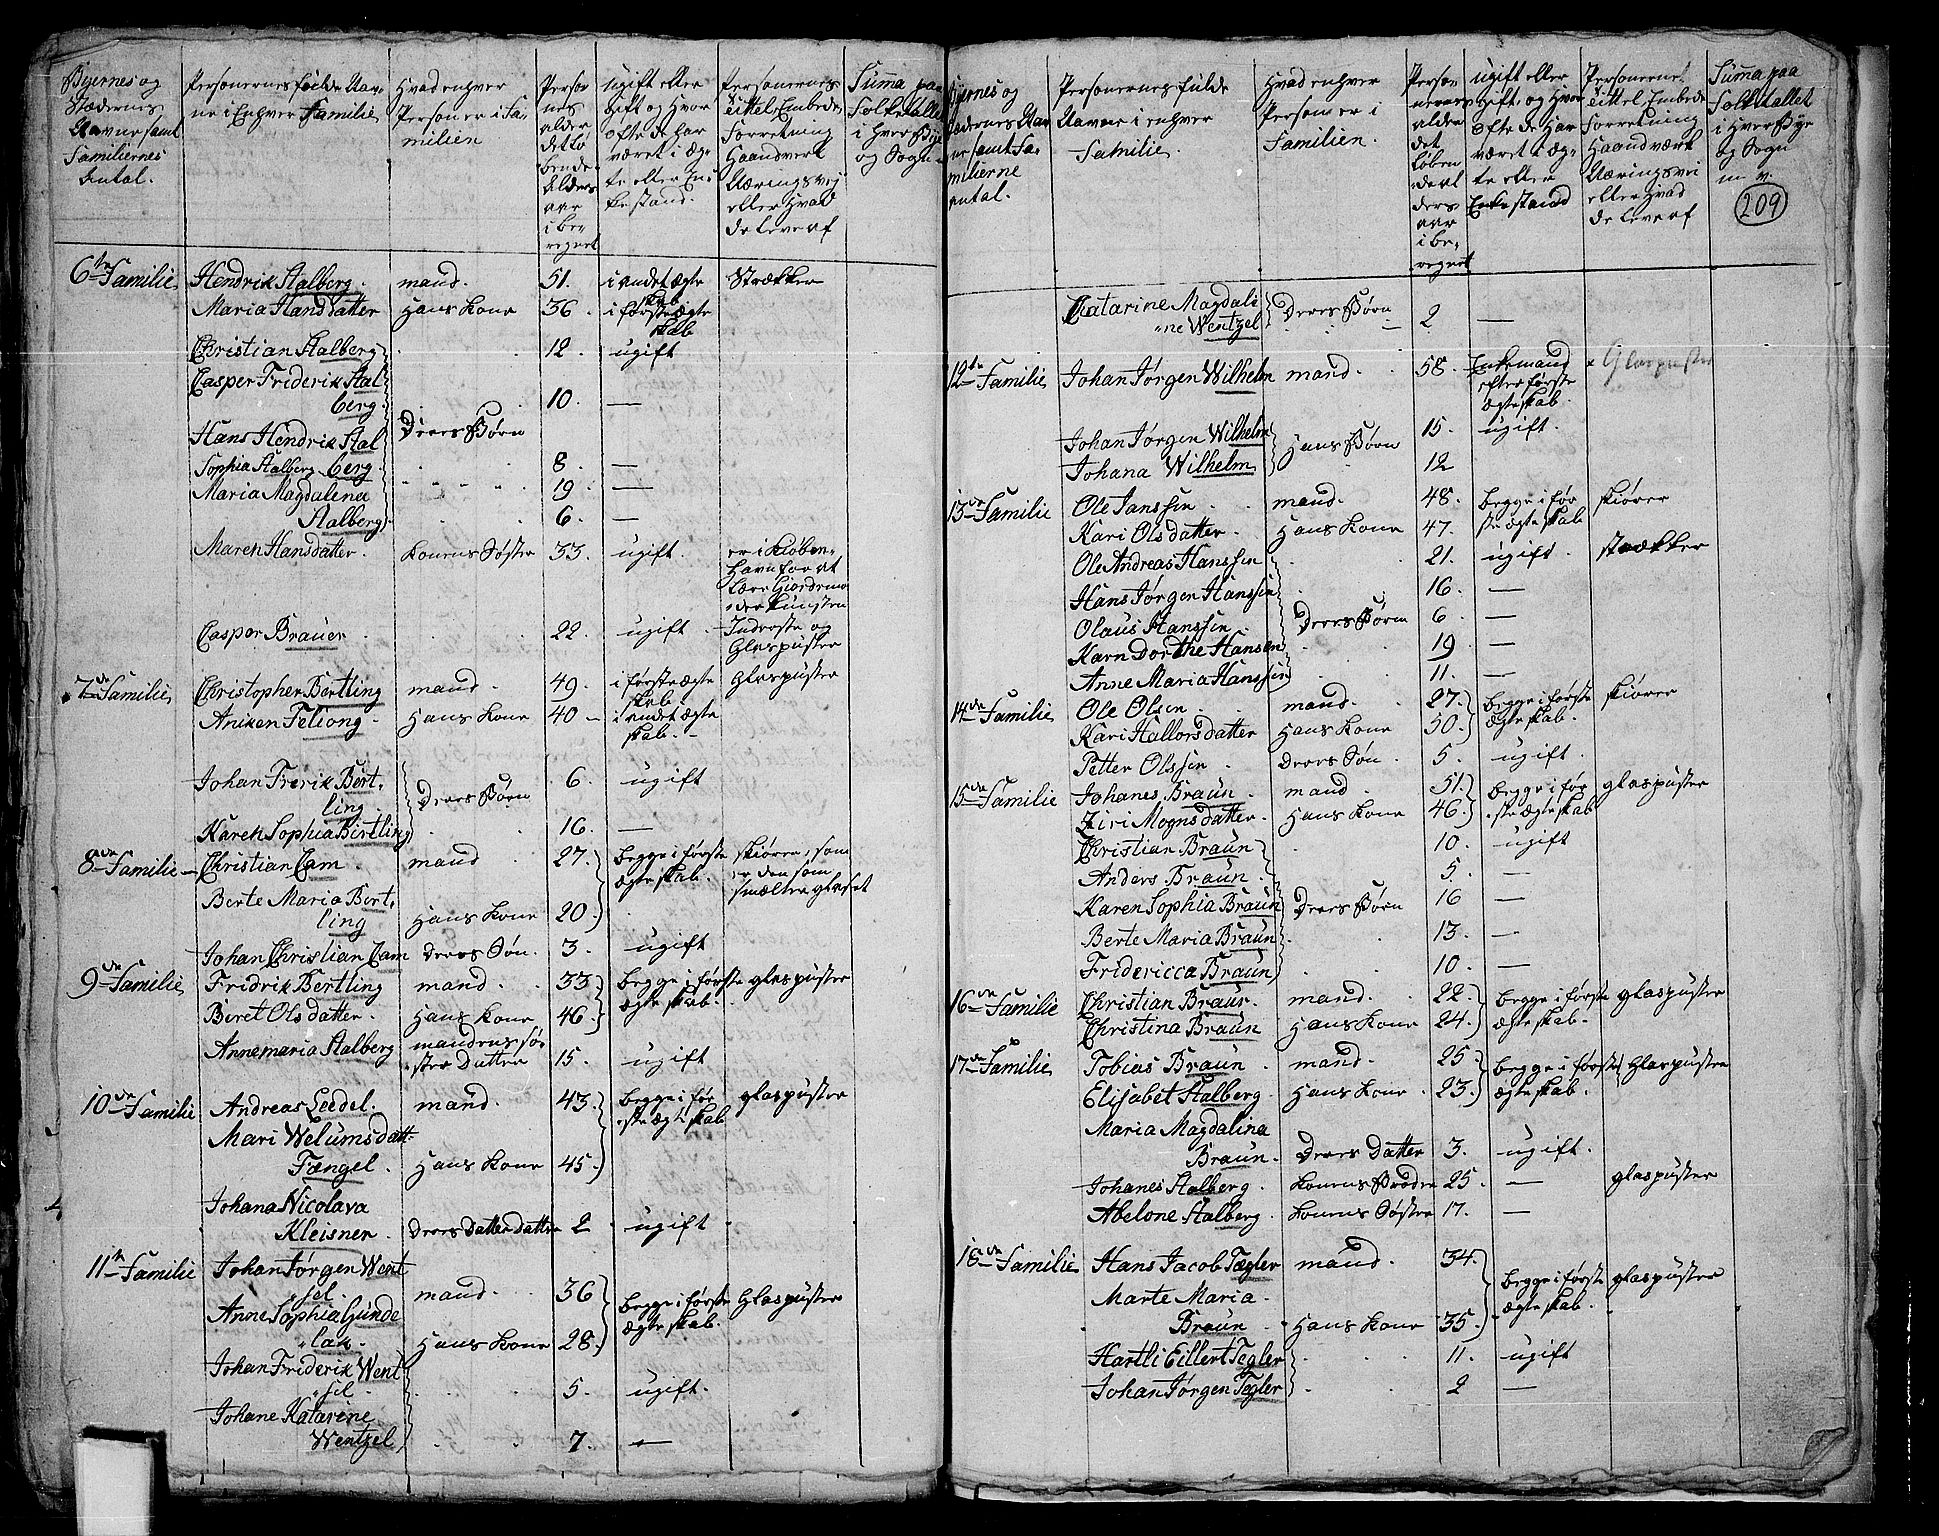 Byernes og
Stædernes
Navne samt
Familiernes
Antal.
Personernes fulde Nav-
ne i Enhver Familie
Hvad enhver
Person er i Fa-
milien
Perso-
nes
alder
det lö
bende
Alders
aar
i be-
regnet
ugift eller
gift og Hvor
ofte de har
været i æg-
te eller En-
kestand.
Personernes
Tittel Embede
Forretning
Haandverk
Næringsvej
eller Hvad
de Leve af
Summa paa
Folketallet
i Hver Bye
og Sogn
6te Familie
Hendrik Stalberg. mand. 51. i andet ægte Strækker
skab
Maria Hansdatter Hans Kone 36. i förste ægte
skab
Christian Stalberg 12. ugift
Casper Friderik Stal
berg. 10. —
Hans Hendrik Stal Deres Börn
berg. 8. —
Sophia Stalberg 19 —
Maria Magdalena
Stalberg 6. —
Maren Hansdatter. Konens Söster 33. ugift. er i Kiöben-
havn for at
lære Giordemo
der Kunsten
Casper Brauer 22. ugift. Indroste og
Glaspuster
7de Familie Christopher Bertling mand. 49. i förste ægte Glaspuster
skab
Aniken Felsong. Hans Kone 40 — i andet ægte
skab. —
Johan Frerik Bert-
ling Deres Börn 6. ugift
Karen Sophia Birtling 16. —
8de Familie — Christian Cam. mand 27. begge i förste skiörer, som
ægteskab. er den som
smelter glaset
Berte Maria Bert-
ling Hans Kone 20.
Johan Christian Cam Deres Sön. 3. ugift
9de Familie Fridrik Bertling mand. 33 begge i förste glaspuster
Beret Olsdatter. Hans Kone 46. ægteskab.
Annemaria Stalberg mandens sö-
ster Datter 15. ugift
10de Familie Andreas Leedel. mand. 43. begge i för glaspuster
ste ægteskab
Mari Welumsdatt-
Fængel. Hans Kone 45.
Johana Nicolava
Kleisner Deres Datterdatter 2 ugift
11te Familie Johan Jörgen Went
sel. mand. 36 begge i förste Glaspuster
Anne Sophia Gunde ægteskab.
lak. Hans Kone 28.
Johan Friderik Went
sel. 5. ugift.
Johane Katarine
Wentzel 7. —
Byernes og
Stædernes Nav
ne samt Fa-
milierne
antal.
Personernes fulde
Navne i enhver
Familie
Hvad enhver
Person er i
Familien.
Perso-
nernes
alder
det
löben
de al
ders
aar
i be-
regnet
ugift eller
gift, og Hvor
ofte de Har
været i æg-
te eller
Enkestand
Personernes
Tittel Embede
Forretning
Haandværk
Næringsvei
eller Hvad
de Leve af
Summa paa
Folketallet
i Hver Bye
og Sogn
m. v.
209
Catarine Magdali
ne Wentzel Deres Börn 2 —
12te Familie Johan Jörgen Wilhelm mand. 58. Enkemand Glaspuster
efter förste
ægteskab.
Johan Jörgen Wilhelm Hans Börn 15. ugift.
Johana Wilhelm 12
13de Familie Ole Janssen. mand. 48. begge i för skiörer
Kari Olsdatter. Hans Kone 47. ste ægteskab
Ole Andreas Hanssen 21. ugift. strækker
Hans Jörgen Hanssen 16. —
Olaus Hanssen. Deres Börn 6 —
Karn Dorthe Hansen 19 —
Anne Maria Hanssen 11. —
14de Familie Ole Olsen. mand. 27. begge i förste skiörer
Kari Hallorsdatter Hans Kone 50. ægteskab.
Petter Olssen Deres Sön. 5. ugift.
15de Familie Johanes Braun. mand 51. begge i för glaspuster
Ziri Mognsdatter. Hans Kone 46. ste ægteskab
Christian Braun 10. ugift
Anders Braun. 5. —
Karen Sophia Braun Deres Börn 16 —
Berte Maria Braun 13. —
Fridericca Braun 10. —
16de Familie Christian Braur. mand. 22. begge i förste glaspuster
Christina Braun Hans Kone 24. ægteskab.
17de Familie Tobias Braun mand. 25. begge i förste Glaspuster
Elisabet Stalberg. Hans Kone 23. ægteskab.
Maria Magdalina
Braun. Deres Datter 3. ugift.
Johanes Stalberg. Konens Broder 25. — glaspuster
Abelone Stalberg. Konens Söster 17. —
18de Familie Hans Jacob Tægler mand. 34. begge i förste glaspuster
ægteskab.
Marte Maria
Braun Hans Kone 35.
Hartli Eillert Tegler 11. ugift
Johan Jörgen Tegler 2 —